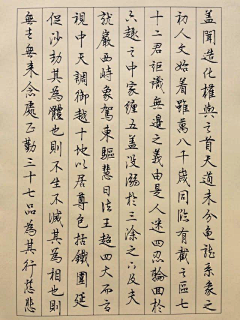 蓋聞造化權輿之首天道未分龜龍系象之
初人文始着雖萬八千歲同臨有截之區七
十二君詎識無邊之義由是人迷四忍輪回於
六趣之中家纏五蓋沒溺於三涂之下及夫
鷲巖西峙象駕東驅慧日法王超四大而高
視中天調御越十地以居尊包括鐵圍延
促沙劫其為體也則不生不滅其為相也則
無去無來念處正勤三十七品為其行慈悲